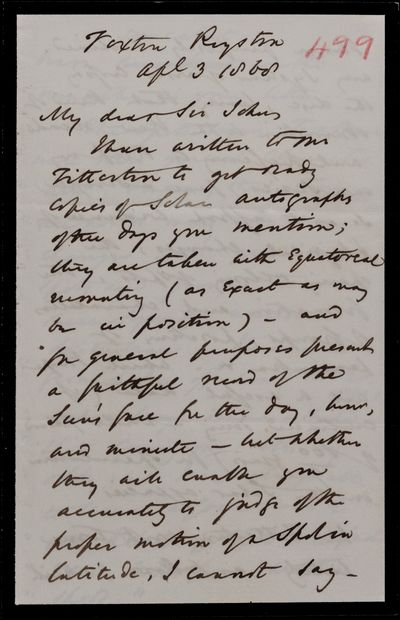 Foxton Royston
499
Apl 3 1868
My dear Sir John
I have written to Mr
Titterton to get ready
copies of Solar autographs
of the days you mention;
they are taken with Equatoreal
mounting (as Exact as may
be in position) – and
for general purposes present
a faithful record of the
Sun's face for the day, hour,
and minute – but whether
they will enable you
accurately to judge of the
proper motion of a Spot in
latitude, I cannot say –